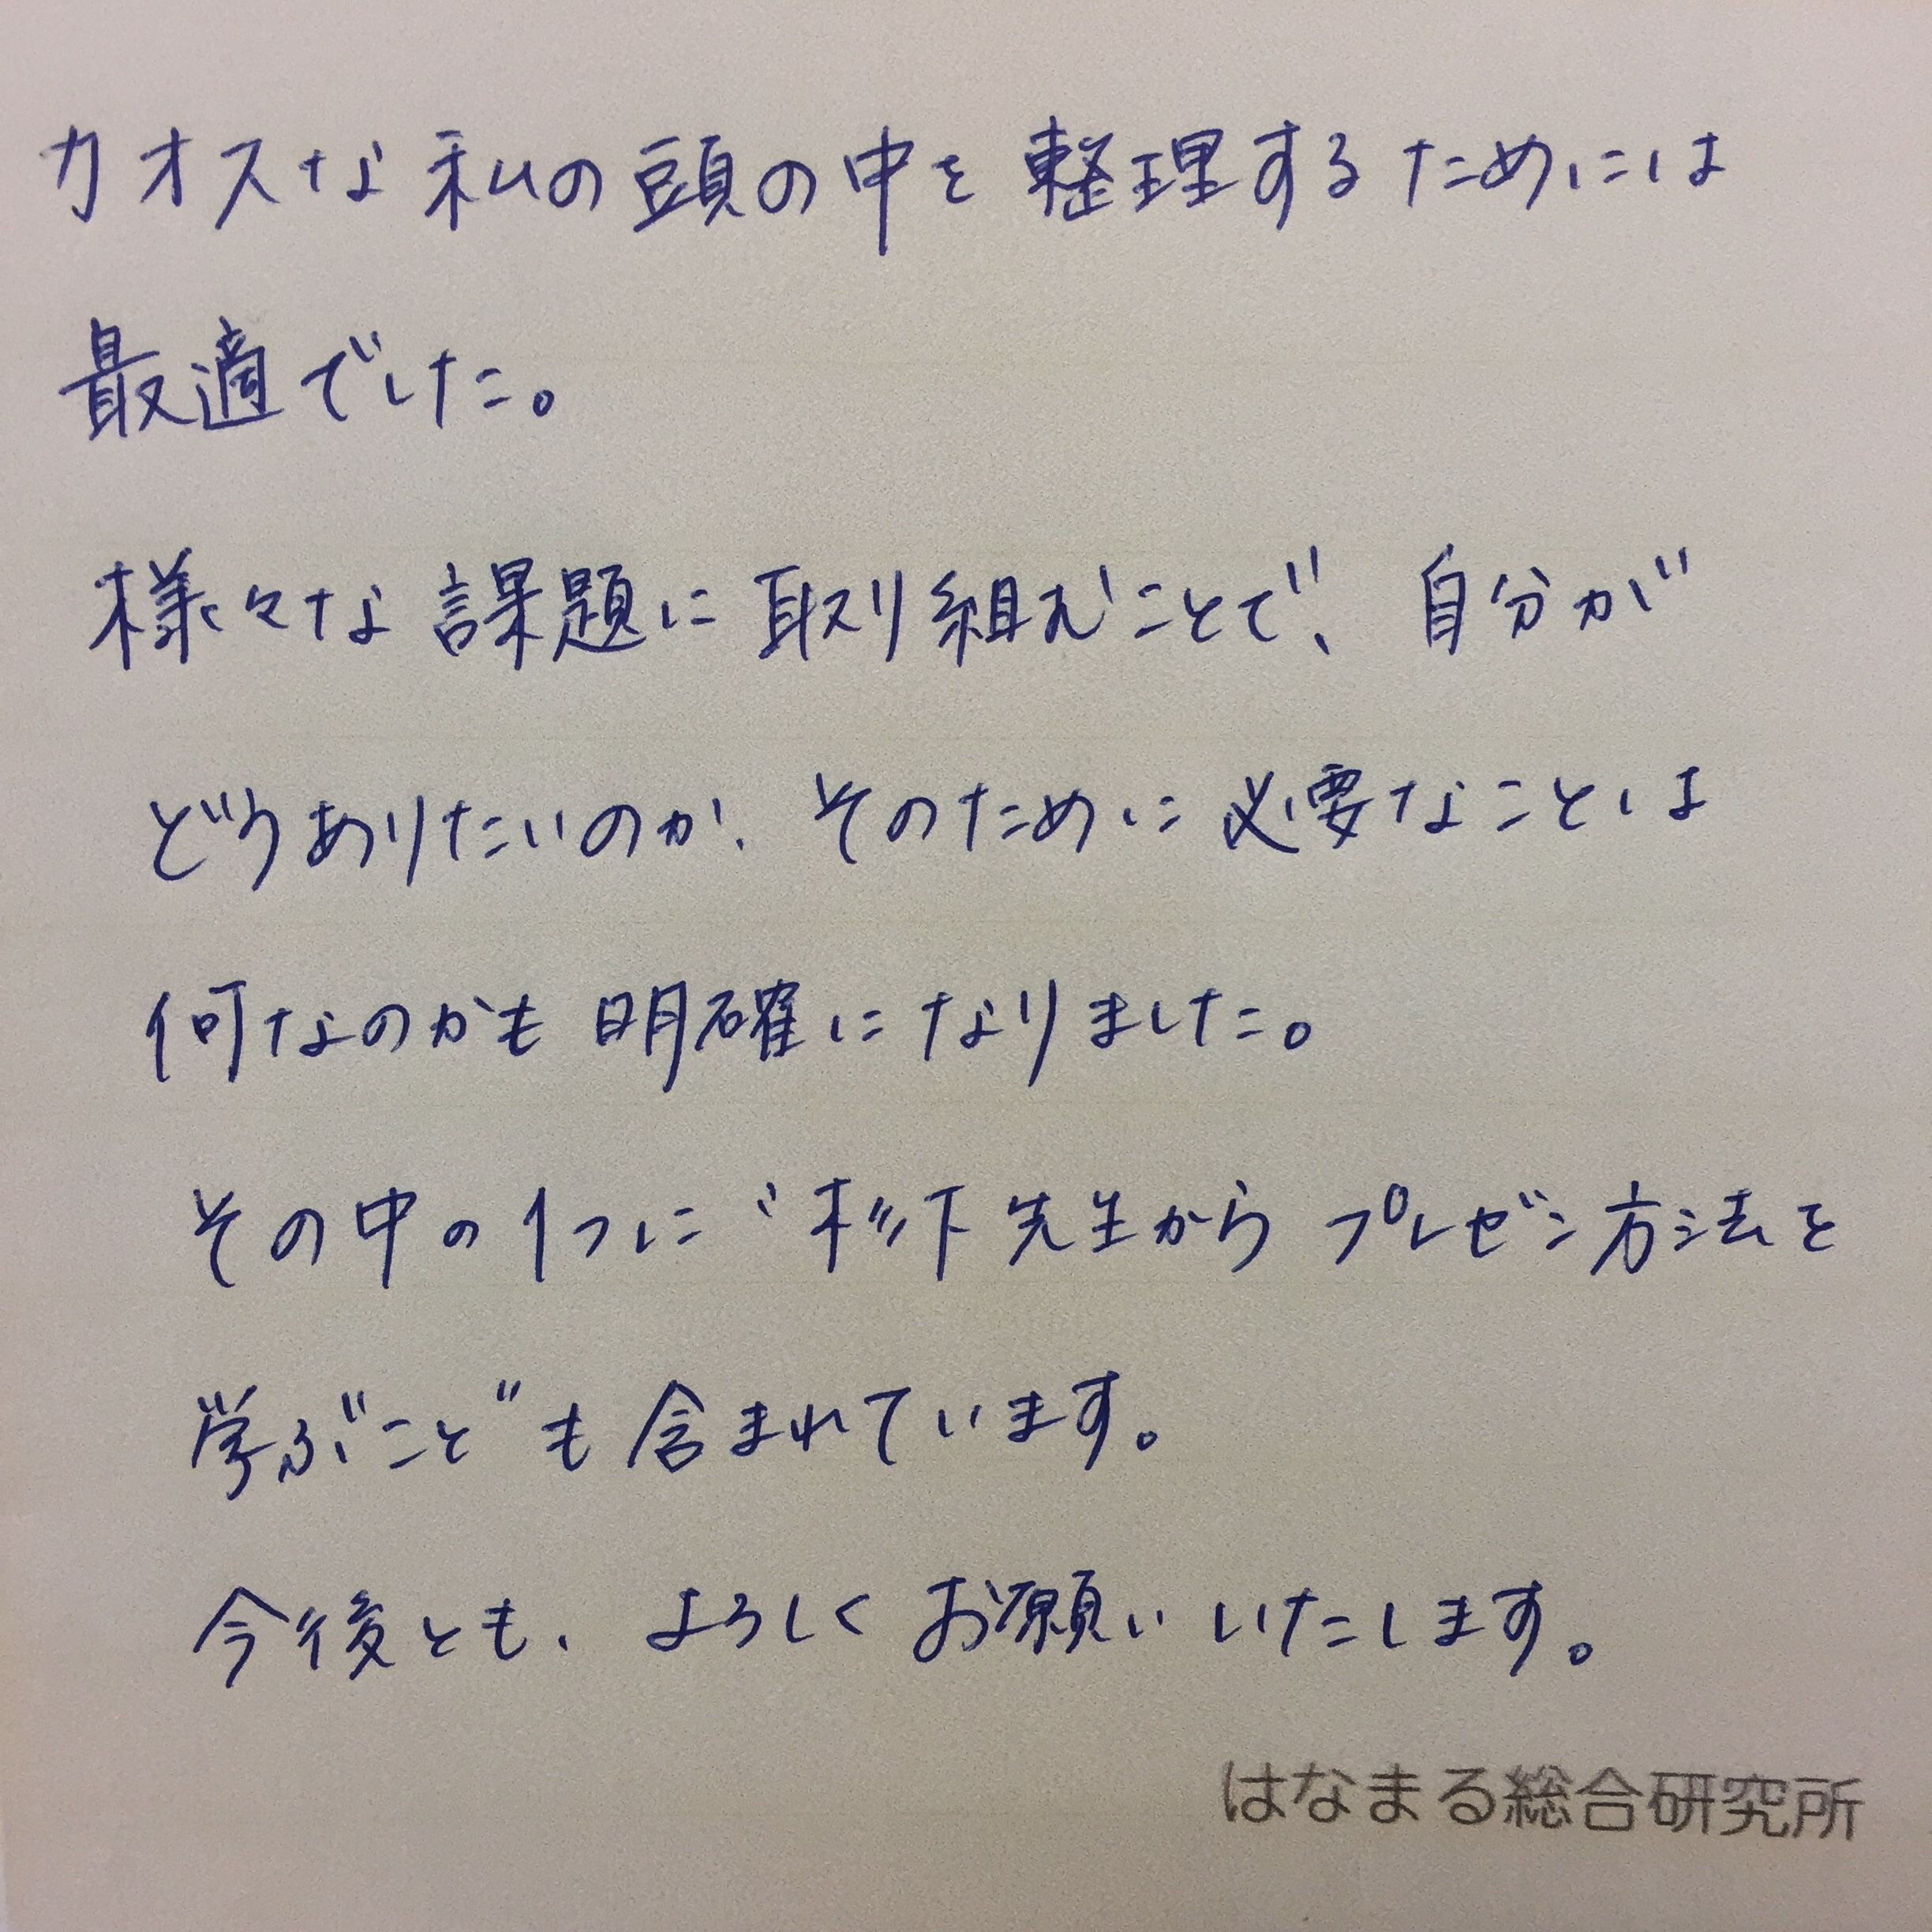 カオスな私の頭の中を整理するためには
最適でした。
様々な課題に取り組むことで、自分が
どうありたいのか、そのために必要なことは
何なのかも明確になりました。
その中の1つに〝ホット先生からプレゼン方法を
学ぶこと〟も含まれています。
今後とも、よろしくお願いいたします。
はなまる総合研究所